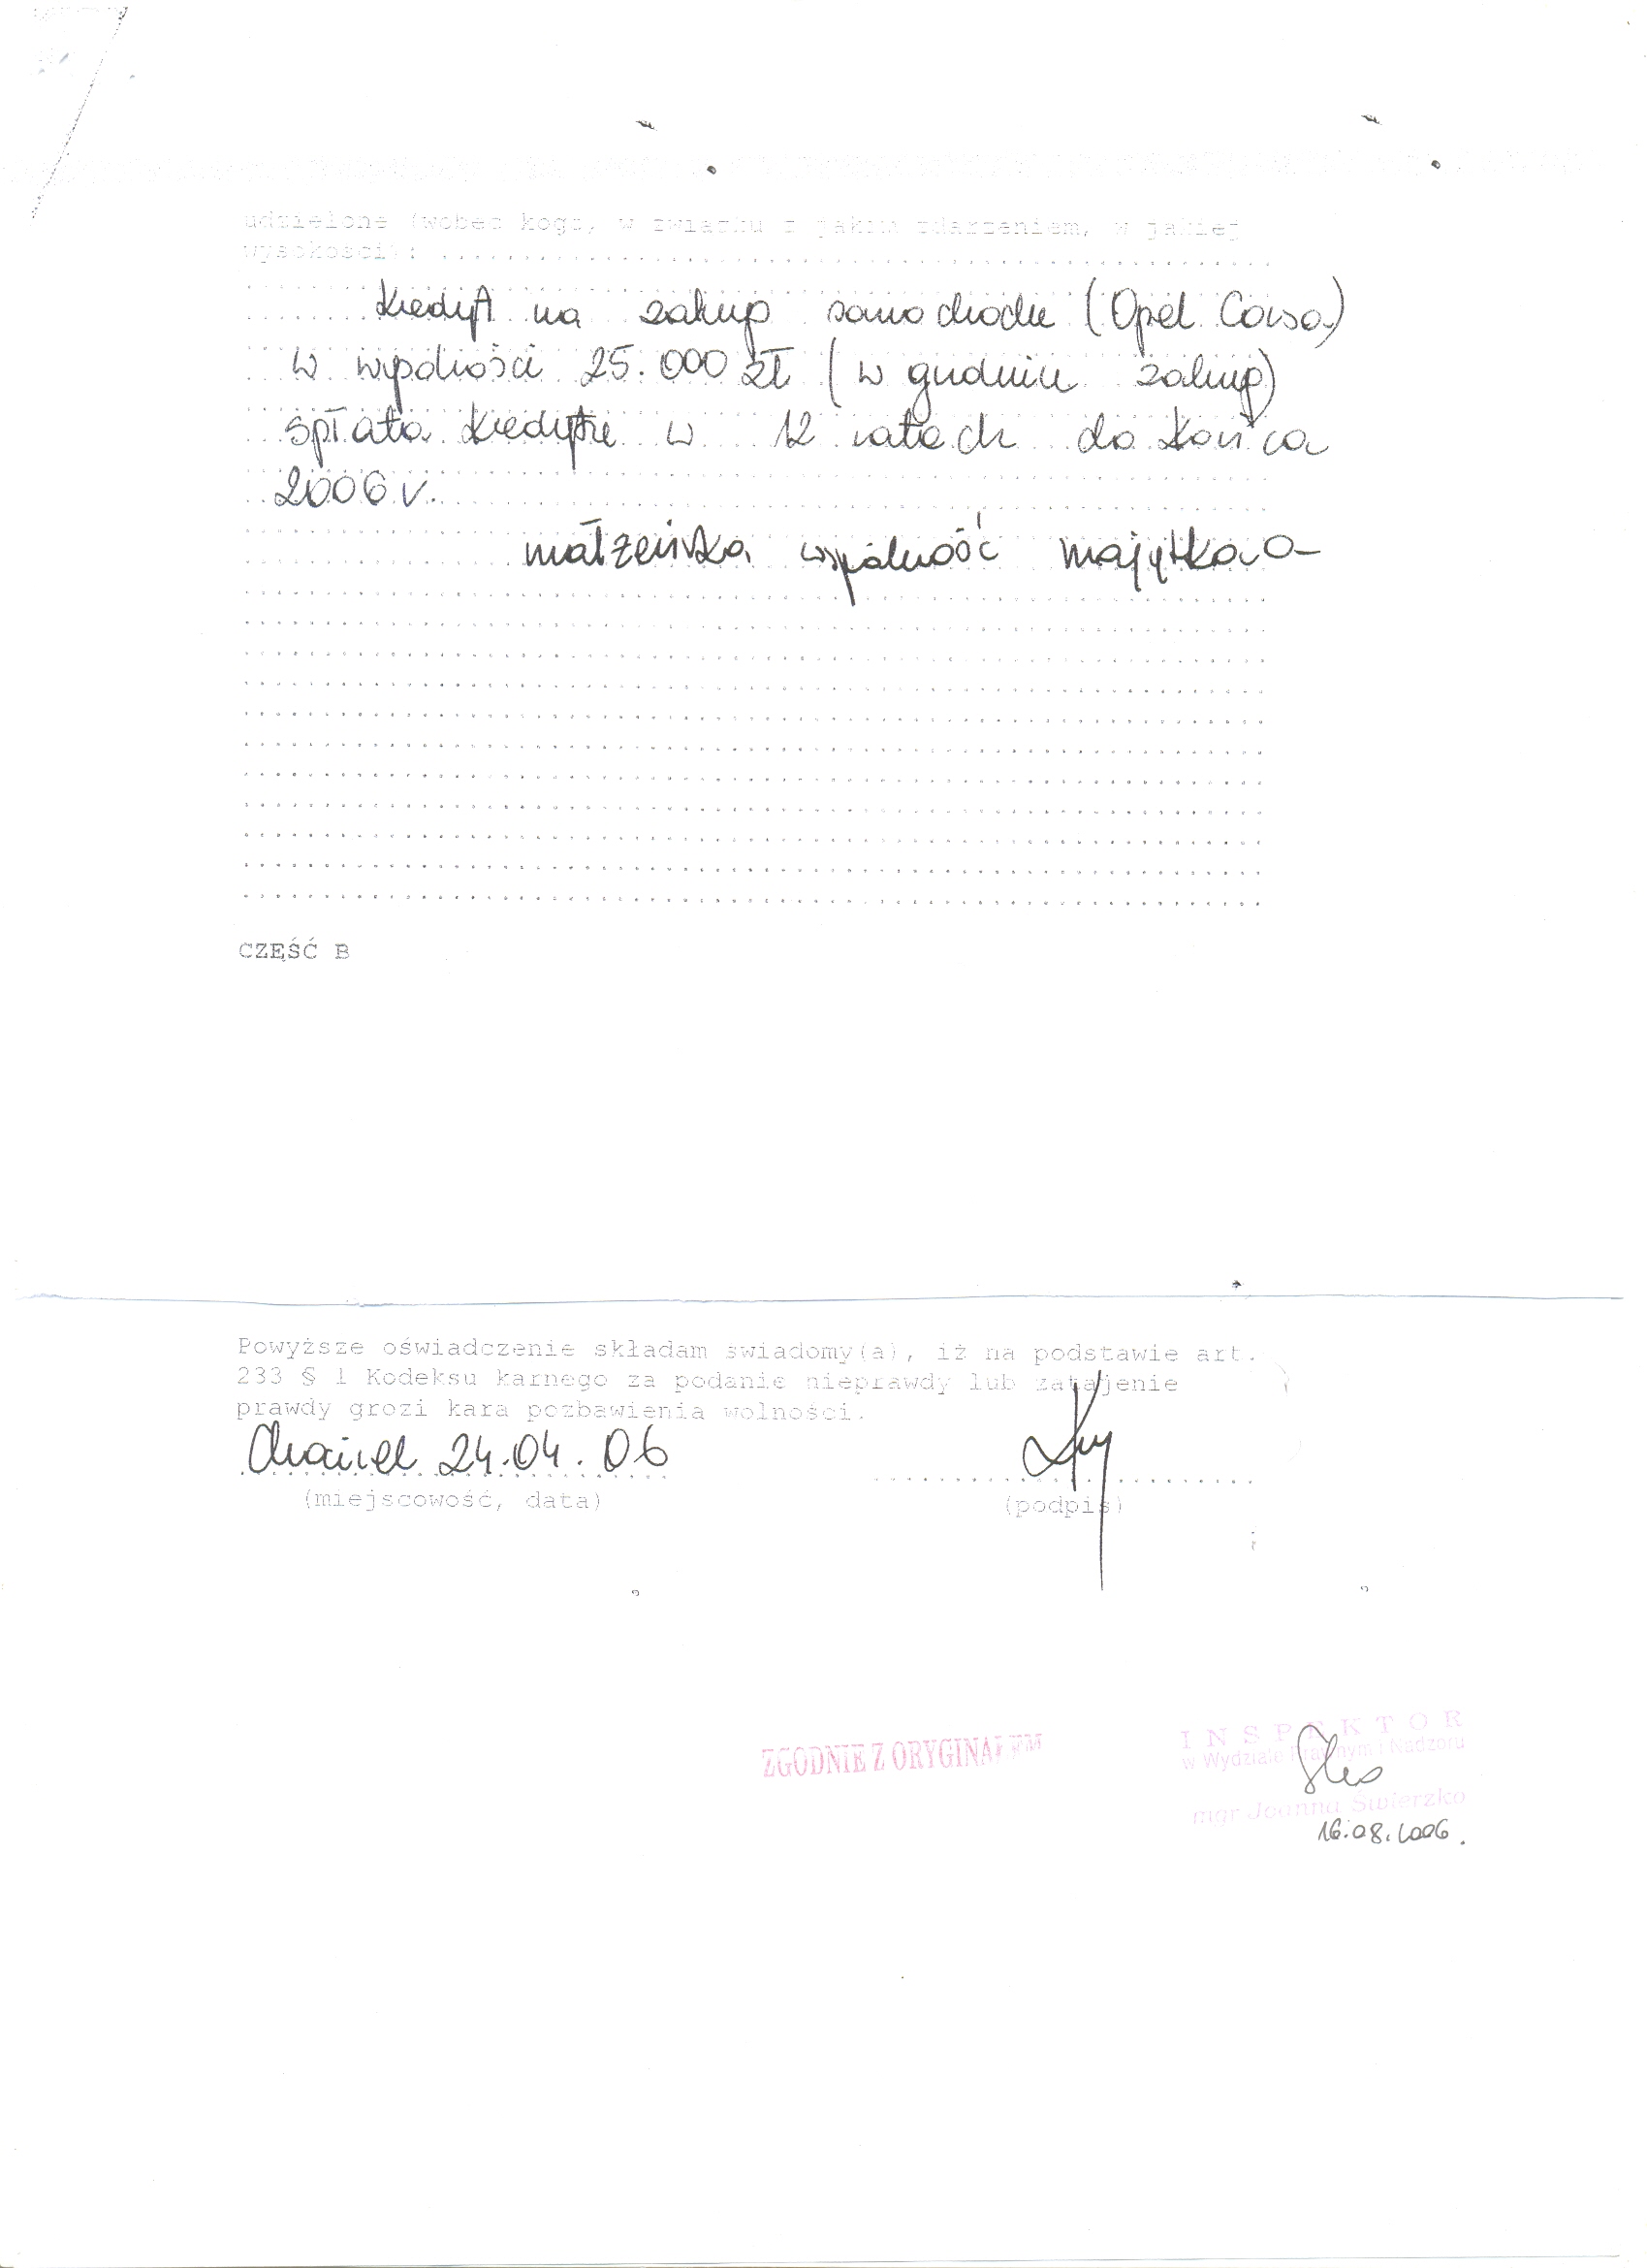 udzielone (wobec kogo, w związku z jakim zdarzeniem, w jakiej
wysokości): ....................
kredyt na zakup samochodu (Opel Corsa)
w wysokości 25.000 zł (w grudniu zakup)
spłata kredytu w 12 ratach do końca
2006 r.
małżeńska wspólność majątkowa
CZĘŚĆ B
Powyższe oświadczenie składam świadomy(a), iż na podstawie art.
233 § 1 Kodeksu karnego za podanie nieprawdy lub zatajenie
prawdy grozi kara pozbawienia wolności.
24.04.06
(miejscowość, data)
(podpis)
ZGODNIE Z ORYGINAŁEM
INSPEKTOR
w Wydziale Prawnym i Nadzoru
mgr Joanna Świerzko
16.08.2006.